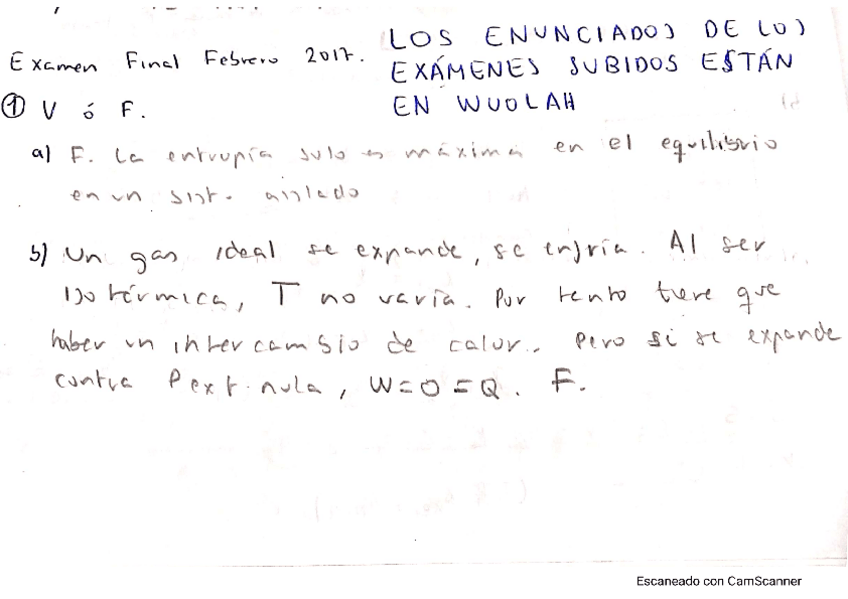 Examen Final Febrero 2017.
LOS ENUNCIADOS DE LOS
EXÁMENES SUBIDOS ESTÁN
EN WUOLAH
① V ó F.
a) F. La entropía solo es máxima en el equilibrio
en un sist. aislado
b) Un gas ideal se expande, se enfría. Al ser
isotérmica, T no varía. Por tanto tiene que
haber un intercambio de calor. Pero si se expande
contra Pext. nula, W=0=Q. F.
Escaneado con CamScanner